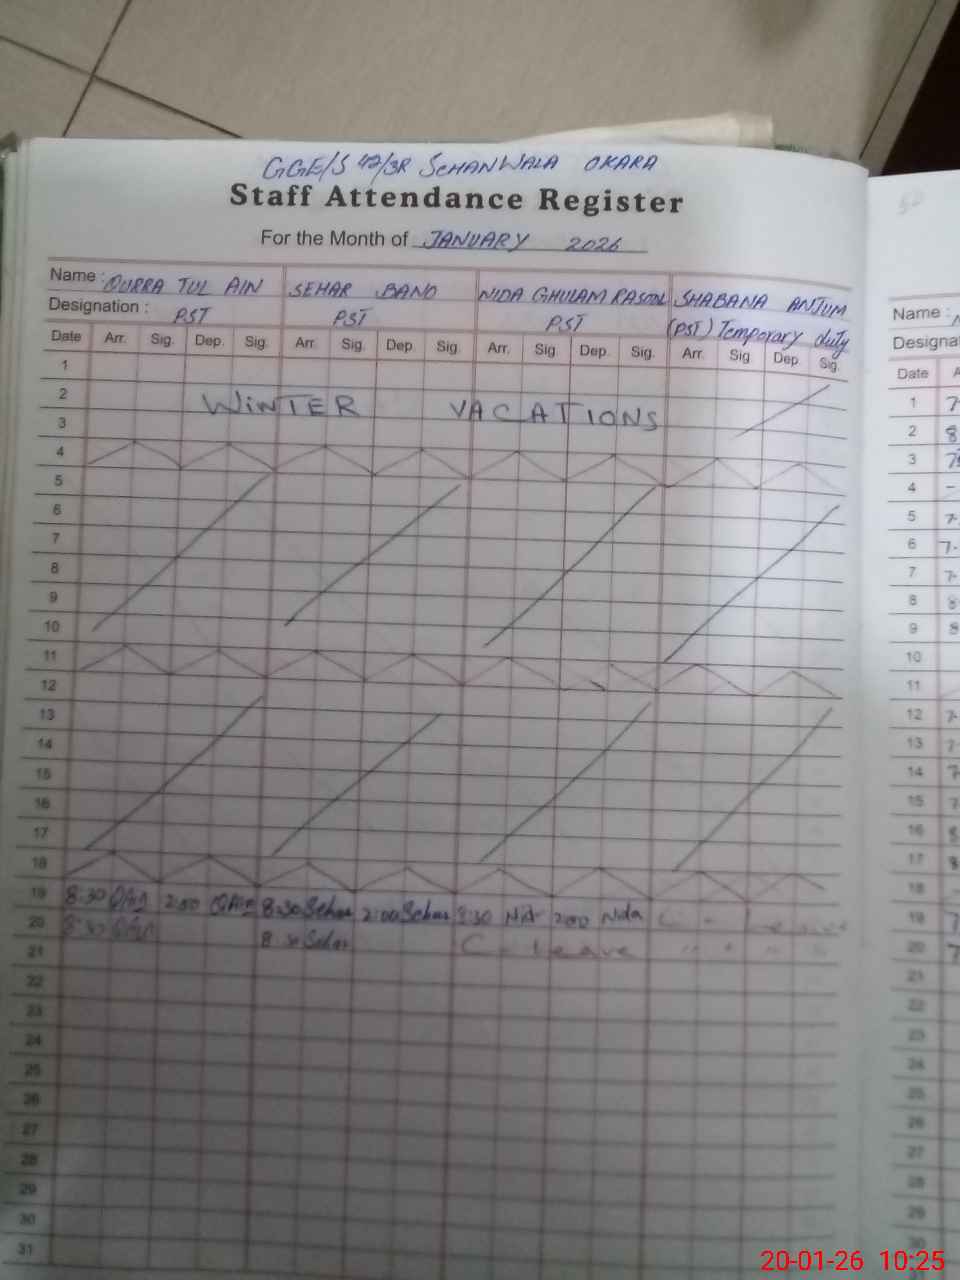 GGE/S 42/3R SCHANWALA OKARA
Staff Attendance Register
For the Month of JANUARY 2026
Name : QURRA TUL AIN SEHAR BANO NIDA GHULAM RASOOL SHABANA ANJUM
Designation : PST PST PST (PST) Temporary duty
Date Arr. Sig. Dep. Sig. Arr. Sig. Dep. Sig. Arr. Sig. Dep. Sig. Arr. Sig. Dep. Sig.
1
2 WINTER VACATIONS
3
4
5
6
7
8
9
10
11
12
13
14
15
16
17
18
19 8:30 2:00 8:30 Sehar 2:00 Sehar 8:30 Nida 2:00 Nida C - Leave
20 8:30 8:30 Sehar C - Leave " " " "
21
22
23
24
25
26
27
28
29
30
31
Name :
Designa
Date A
1 7
2 8
3 7
4 -
5 7
6 7
7 7
8 8
9 8
10
11
12 7
13 7
14 7
15 7
16 8
17 8
18
19 7
20 7
21
22
23
24
25
26
27
28
29
30
20-01-26 10:25